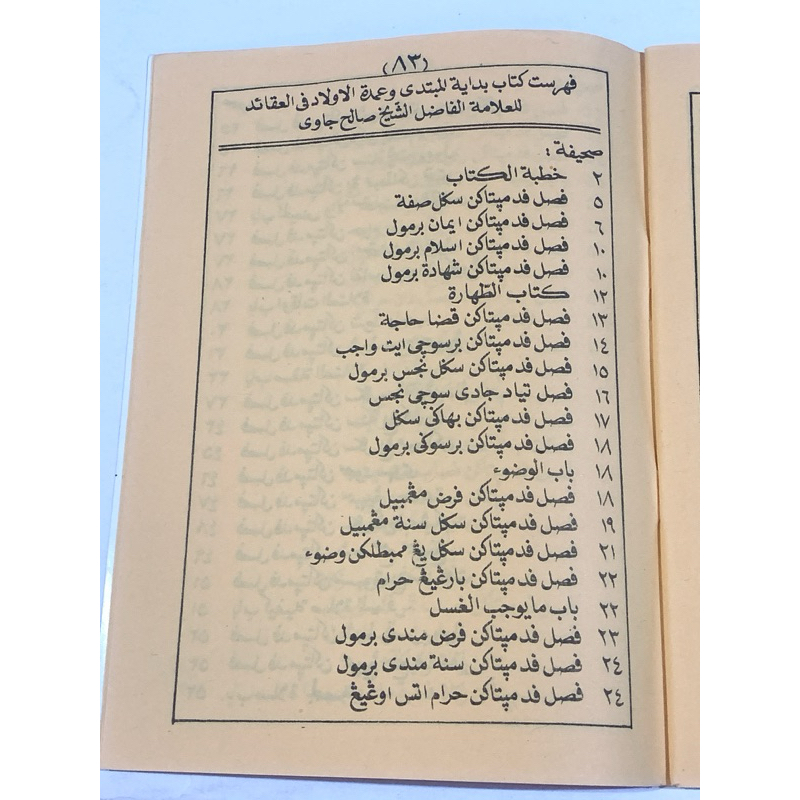 (٨٣)
فهرست كتاب بداية المبتدى وعمدة الاولاد فى العقائد
للعلامة الفاضل الشيخ صالح جاوى
صحيفة :
٢ خطبة الكتاب
٥ فصل فد مپتاكن سكل صفة
٦ فصل فد مپتاكن ايمان برمول
١٠ فصل فد مپتاكن اسلام برمول
١٠ فصل فد مپتاكن شهادة برمول
١٢ كتاب الطهارة
١٣ فصل فد مپتاكن قضا حاجة
١٤ فصل فد مپتاكن برسوچى ايت واجب
١٥ فصل فد مپتاكن سكل نجس برمول
١٦ فصل تياد جادى سوچى نجس
١٧ فصل فد مپتاكن بهاكى سكل
١٨ فصل فد مپتاكن برسوكى برمول
١٨ باب الوضوء
١٨ فصل فد مپتاكن فرض مڠمبيل
١٩ فصل فد مپتاكن سكل سنة مڠمبيل
٢١ فصل فد مپتاكن سكل يڠ ممبطلكن وضوء
٢٢ فصل فد مپتاكن بارڠيڠ حرام
٢٢ باب ما يوجب الغسل
٢٣ فصل فد مپتاكن فرض مندى برمول
٢٤ فصل فد مپتاكن سنة مندى برمول
٢٤ فصل فد مپتاكن حرام اتس اوڠيڠ